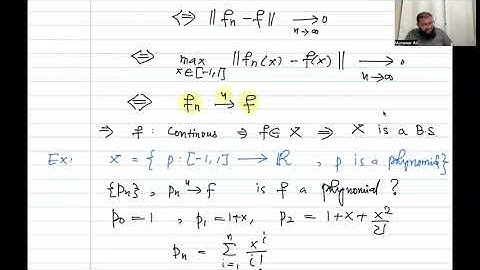 ⟺ ‖ fn - f ‖ ⟶ 0
n→∞
⟺ max ‖ fn(x) - f(x) ‖ ⟶ 0
x∈[-1,1] n→∞
⟺ fn u⟶ f
⇒ f : continous ⇒ f∈X ⇒ X is a B.S.
Ex: X = { p : [-1,1] ⟶ ℝ , p is a polynomial}
{pn} , pn u⟶ f is f a polynomial ?
p0 = 1 , p1 = 1+x, p2 = 1+x+ x²/2!
pn = n∑i=1 xⁱ/i!